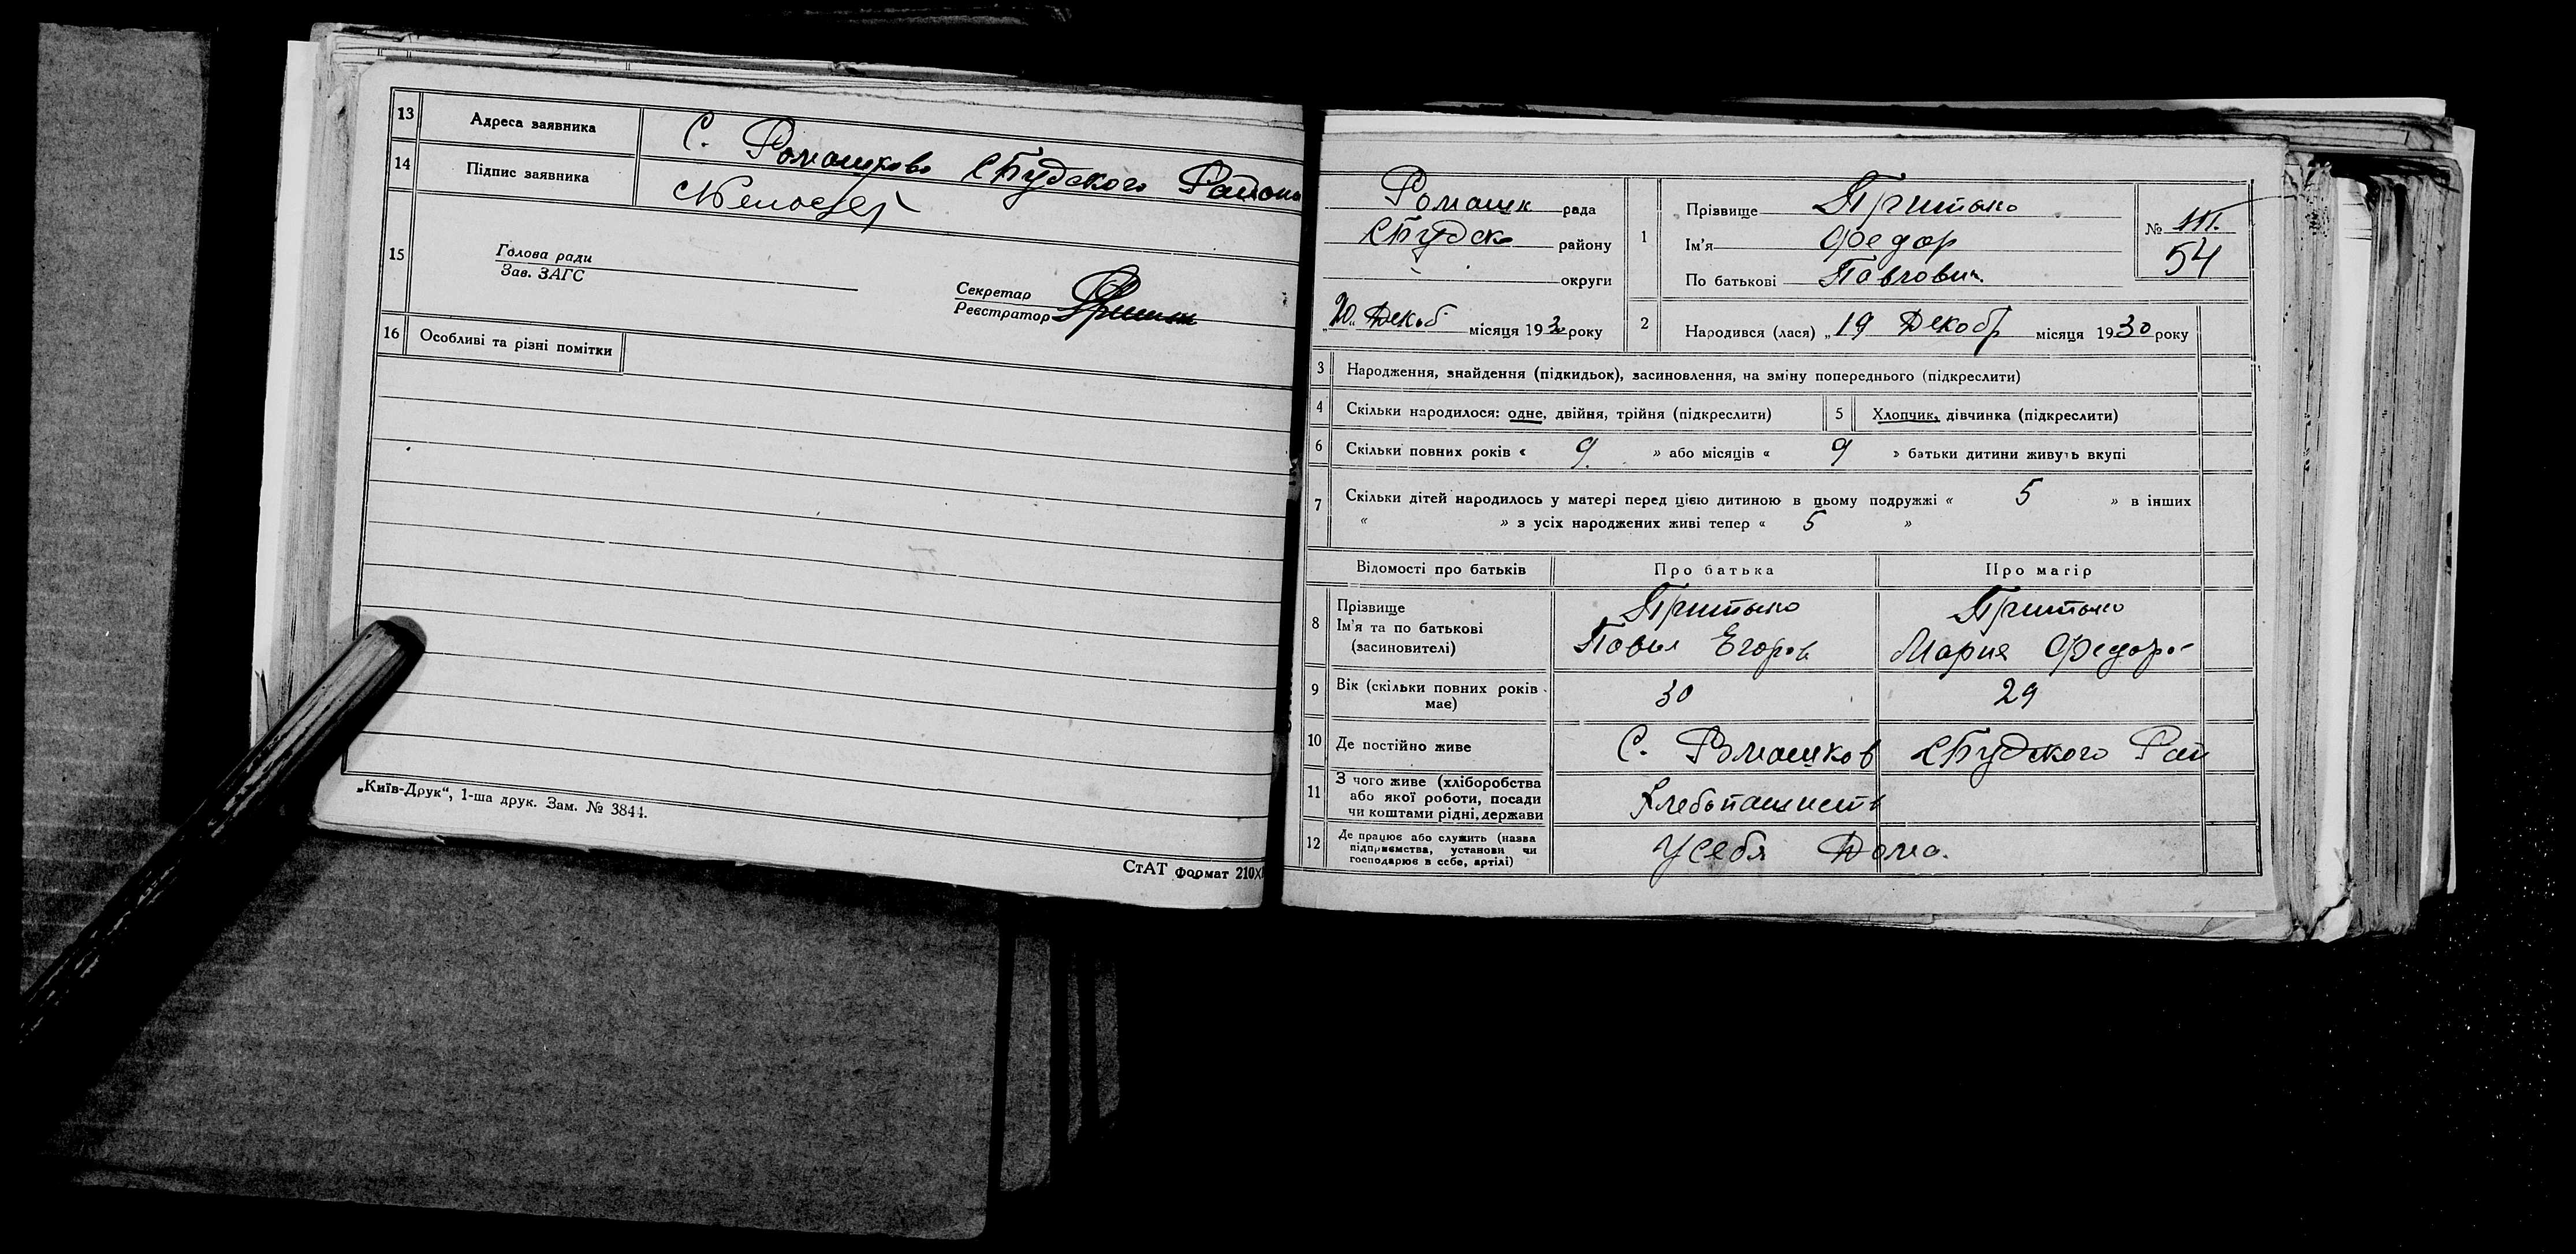 13 Адреса заявника С. Ромашково СБудского Района
14 Підпис заявника
15 Голова ради
Зав. ЗАГС
Секретар
Реєстратор
16 Особливі та різні помітки
„Київ-Друк“, 1-ша друк. Зам. № 3844.
СтАТ формат 210Х
Ромашк рада
СБудск району
округи
„20„ Декаб місяця 1930 року
1 Прізвище Притыко
Ім'я Федор
По батькові Павлович
№ 111.
54
2 Народився (лася) „19 Декабр місяця 1930 року
3 Народження, знайдення (підкидьок), засиновлення, на зміну попереднього (підкреслити)
4 Скільки народилося: одне, двійня, трійня (підкреслити) 5 Хлопчик, дівчинка (підкреслити)
6 Скільки повних років « 9 » або місяців « 9 » батьки дитини живуть вкупі
7 Скільки дітей народилось у матері перед цією дитиною в цьому подружжі « 5 » в інших
« » з усіх народжених живі тепер « 5 »
Відомості про батьків Про батька Про матір
8 Прізвище Притыко Притыко
Ім'я та по батькові Павел Егоров Мария Федоро
(засиновителі)
9 Вік (скільки повних років 30 29
має)
10 Де постійно живе С. Ромашков СБудского Рай
11 З чого живе (хліборобства
або якої роботи, посади Хлебопашеств
чи коштами рідні, держави
12 Де працює або служить (назва
підприємства, установи чи У себя Дома.
господарює в себе, артілі)